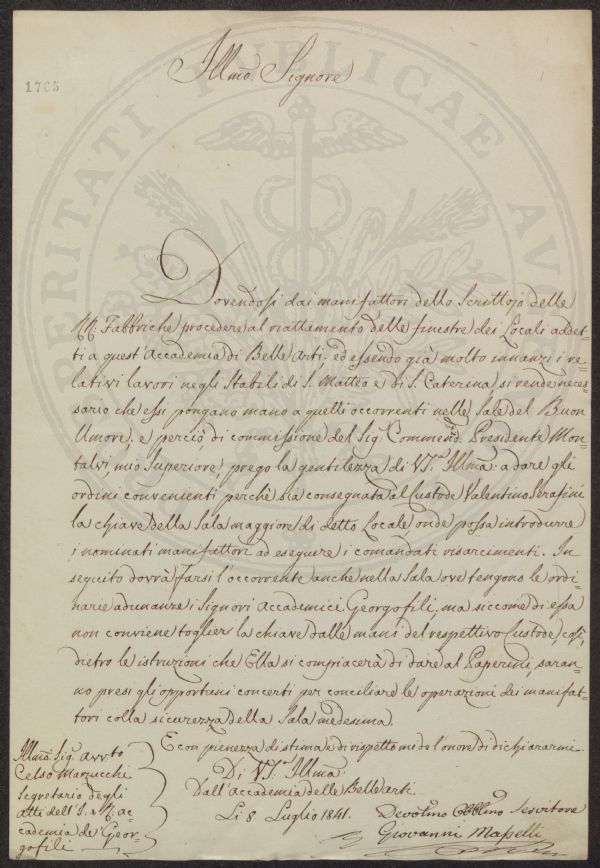 1765
Illmo Signore
Dovendosi dai manifattori dello Scrittojo delle
RR. Fabbriche procedere al riattamento delle finestre dei Locali addet=
ti a quest'Accademia di Belle Arti, ed essendo già molto innanzi i re=
lativi lavori negli Stabili di S. Matteo e di S. Caterina si rende neces=
sario che essi pongano mano a quelli occorrenti nelle Sale del Buon
Umore, e perciò, di commissione del Sig. Commend. Presidente Mon=
talvi, mio Superiore, prego la gentilezza di VS. Illma: a dare gli
ordini convenienti perchè sia consegnata al Custode Valentino Serafini
la chiave della Sala maggiore di detto Locale onde possa introdurre
i nominati manifattori ad eseguire i comandati risarcimenti. In
seguito dovrà farsi l'occorrente anche nella Sala ove tengono le ordi=
narie adunanze i Signori Accademici Georgofili, ma siccome di essa
non conviene toglier la chiave dalle mani del respettivo Custode, così,
dietro le istruzioni che Ella si compiacerà di dare al Paperini, saran=
no presi gli opportuni concerti per conciliare le operazioni dei manifat=
tori colla sicurezza della Sala medesima.
E con pienezza di stima e di rispetto mi do l'onore di dichiararmi
Di VS. Illma:
Dall'Accademia delle Belle arti
Li 8 Luglio 1841.
Devotmo Obblmo Servitore
Giovanni Masselli
Illmo Sig. Avvto
Celso Marzucchi
Segretario degli
Atti dell'I. e R. Ac=
cademia de' Geor=
gofili
PERITATI PUBLICAE AU